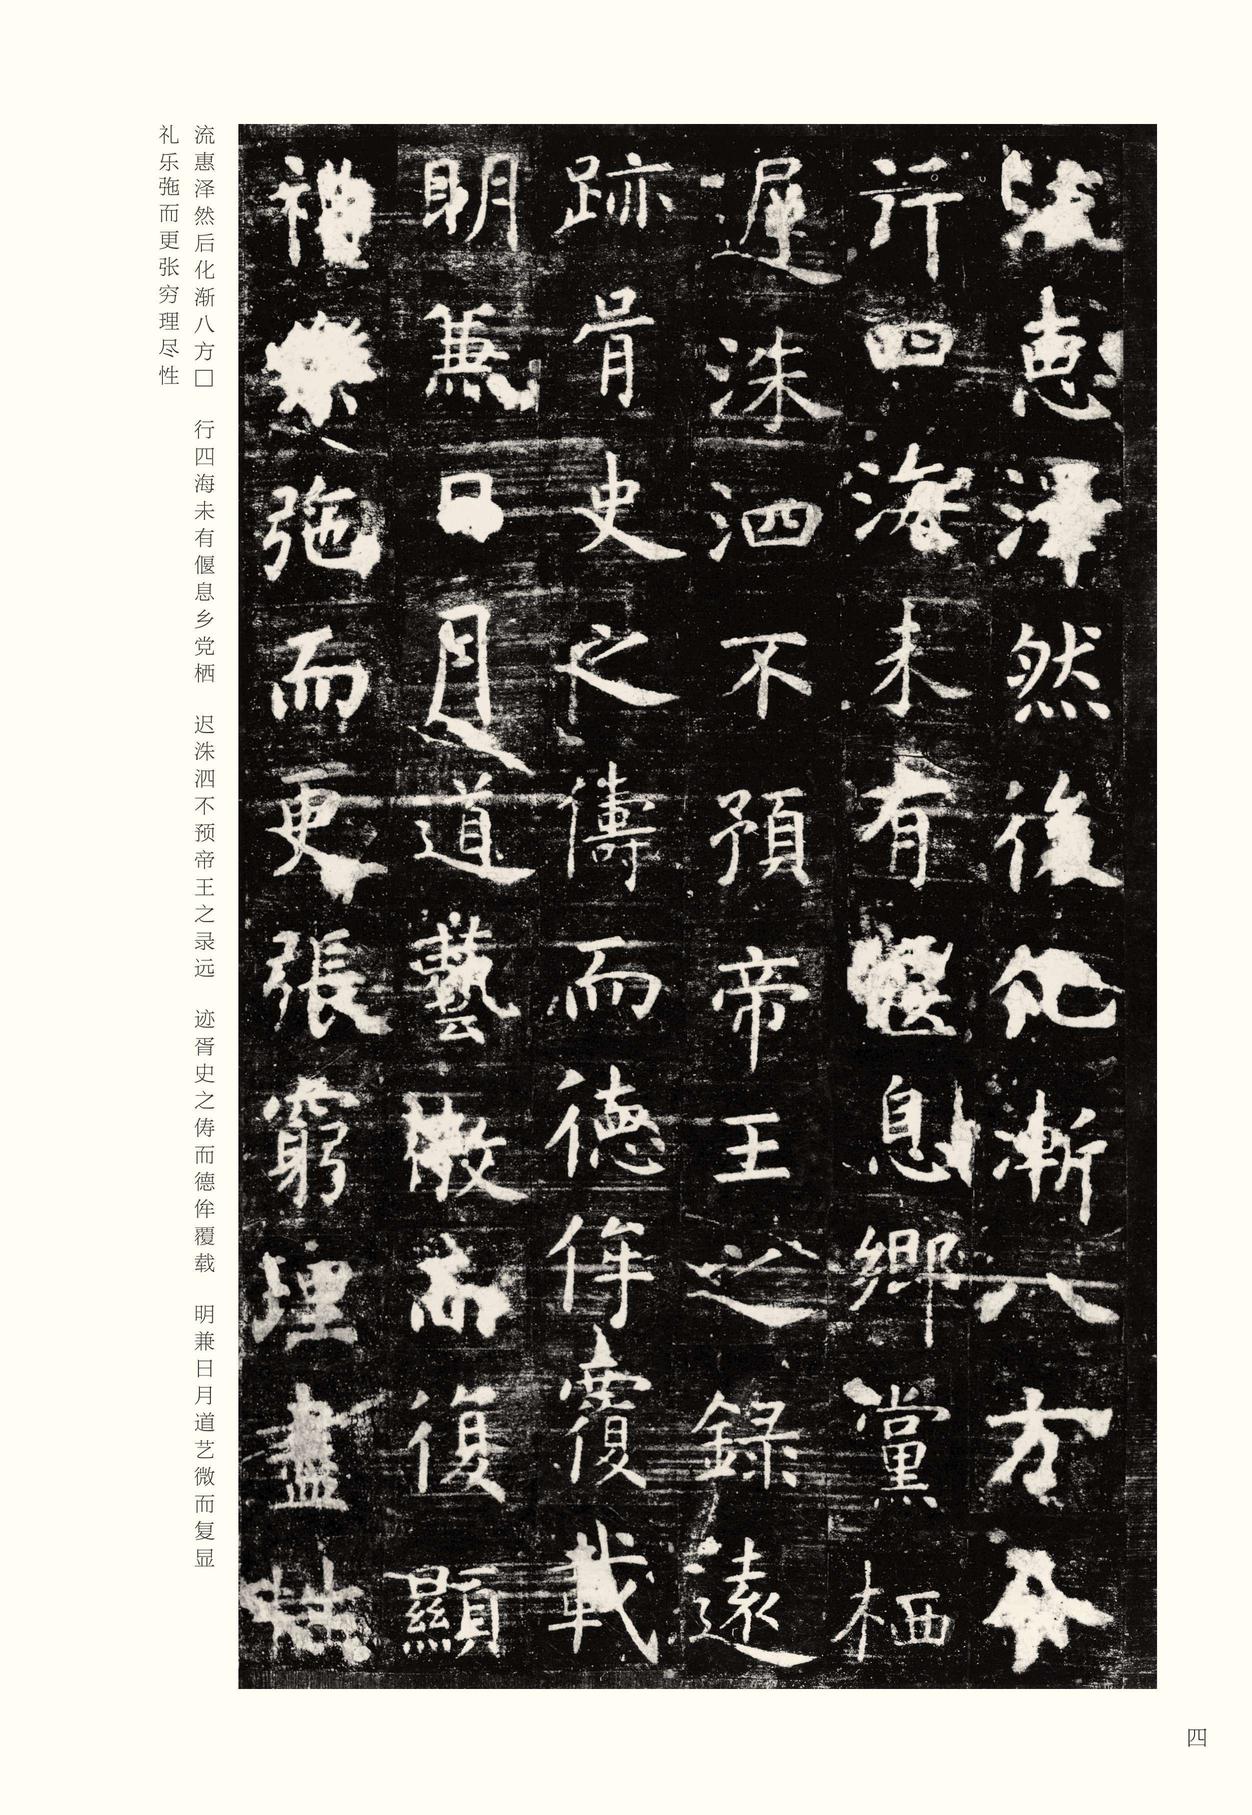 流惠澤然後化漸八方
行四海未有偃息鄉黨栖
遲洙泗不預帝王之錄遠
跡胥史之儔而德侔覆載
明兼日月道藝微而復顯
禮樂弛而更張窮理盡性
流惠泽然后化渐八方□ 行四海未有偃息乡党栖 迟洙泗不预帝王之录远 迹胥史之俦而德侔覆载 明兼日月道艺微而复显
礼乐弛而更张穷理尽性
四